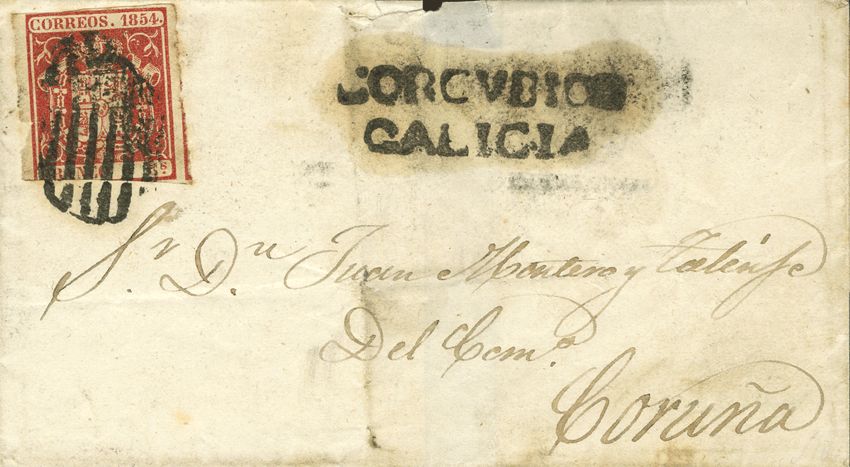 CORREOS. 1854.
CORCVBION
GALICIA
Sr. Dn. Juan Montero y Telense
Del Comº.
Coruña